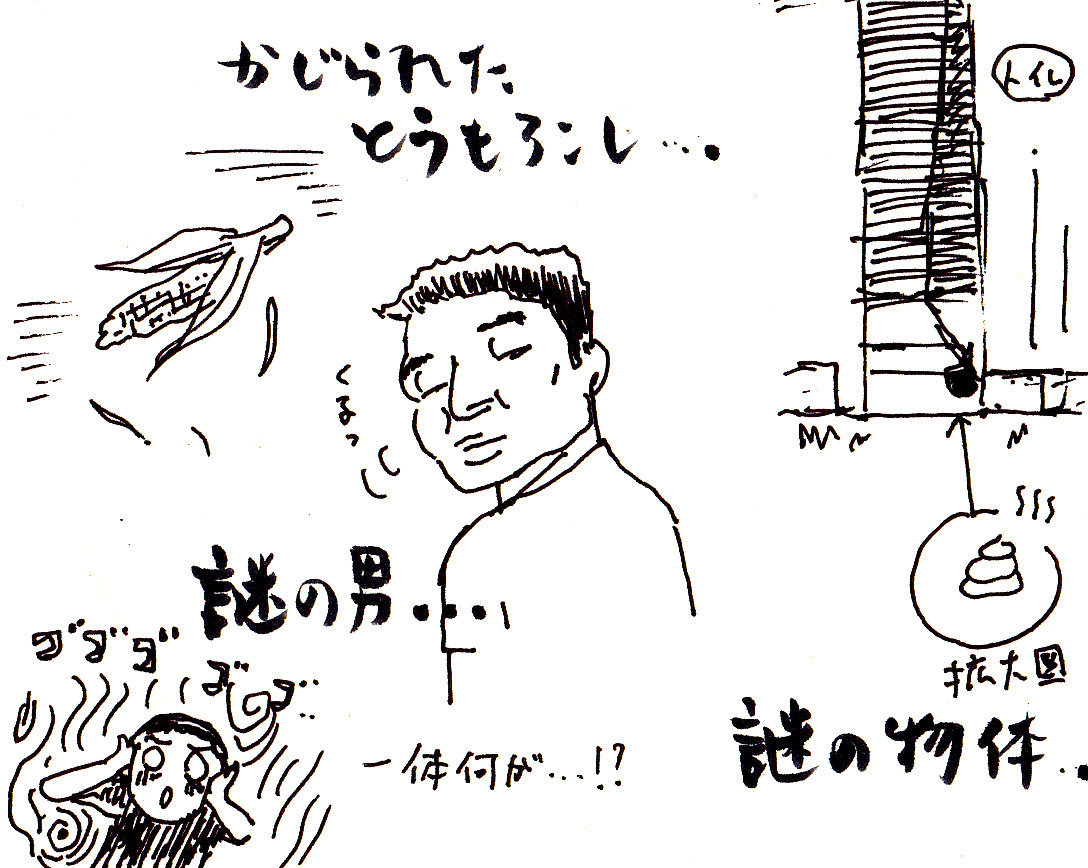 かじられた
とうもろコシ…
トイレ
くるっ
謎の男…
ゴゴゴ
ゴゴ…
一体何が…!?
拡大図
謎の物体…